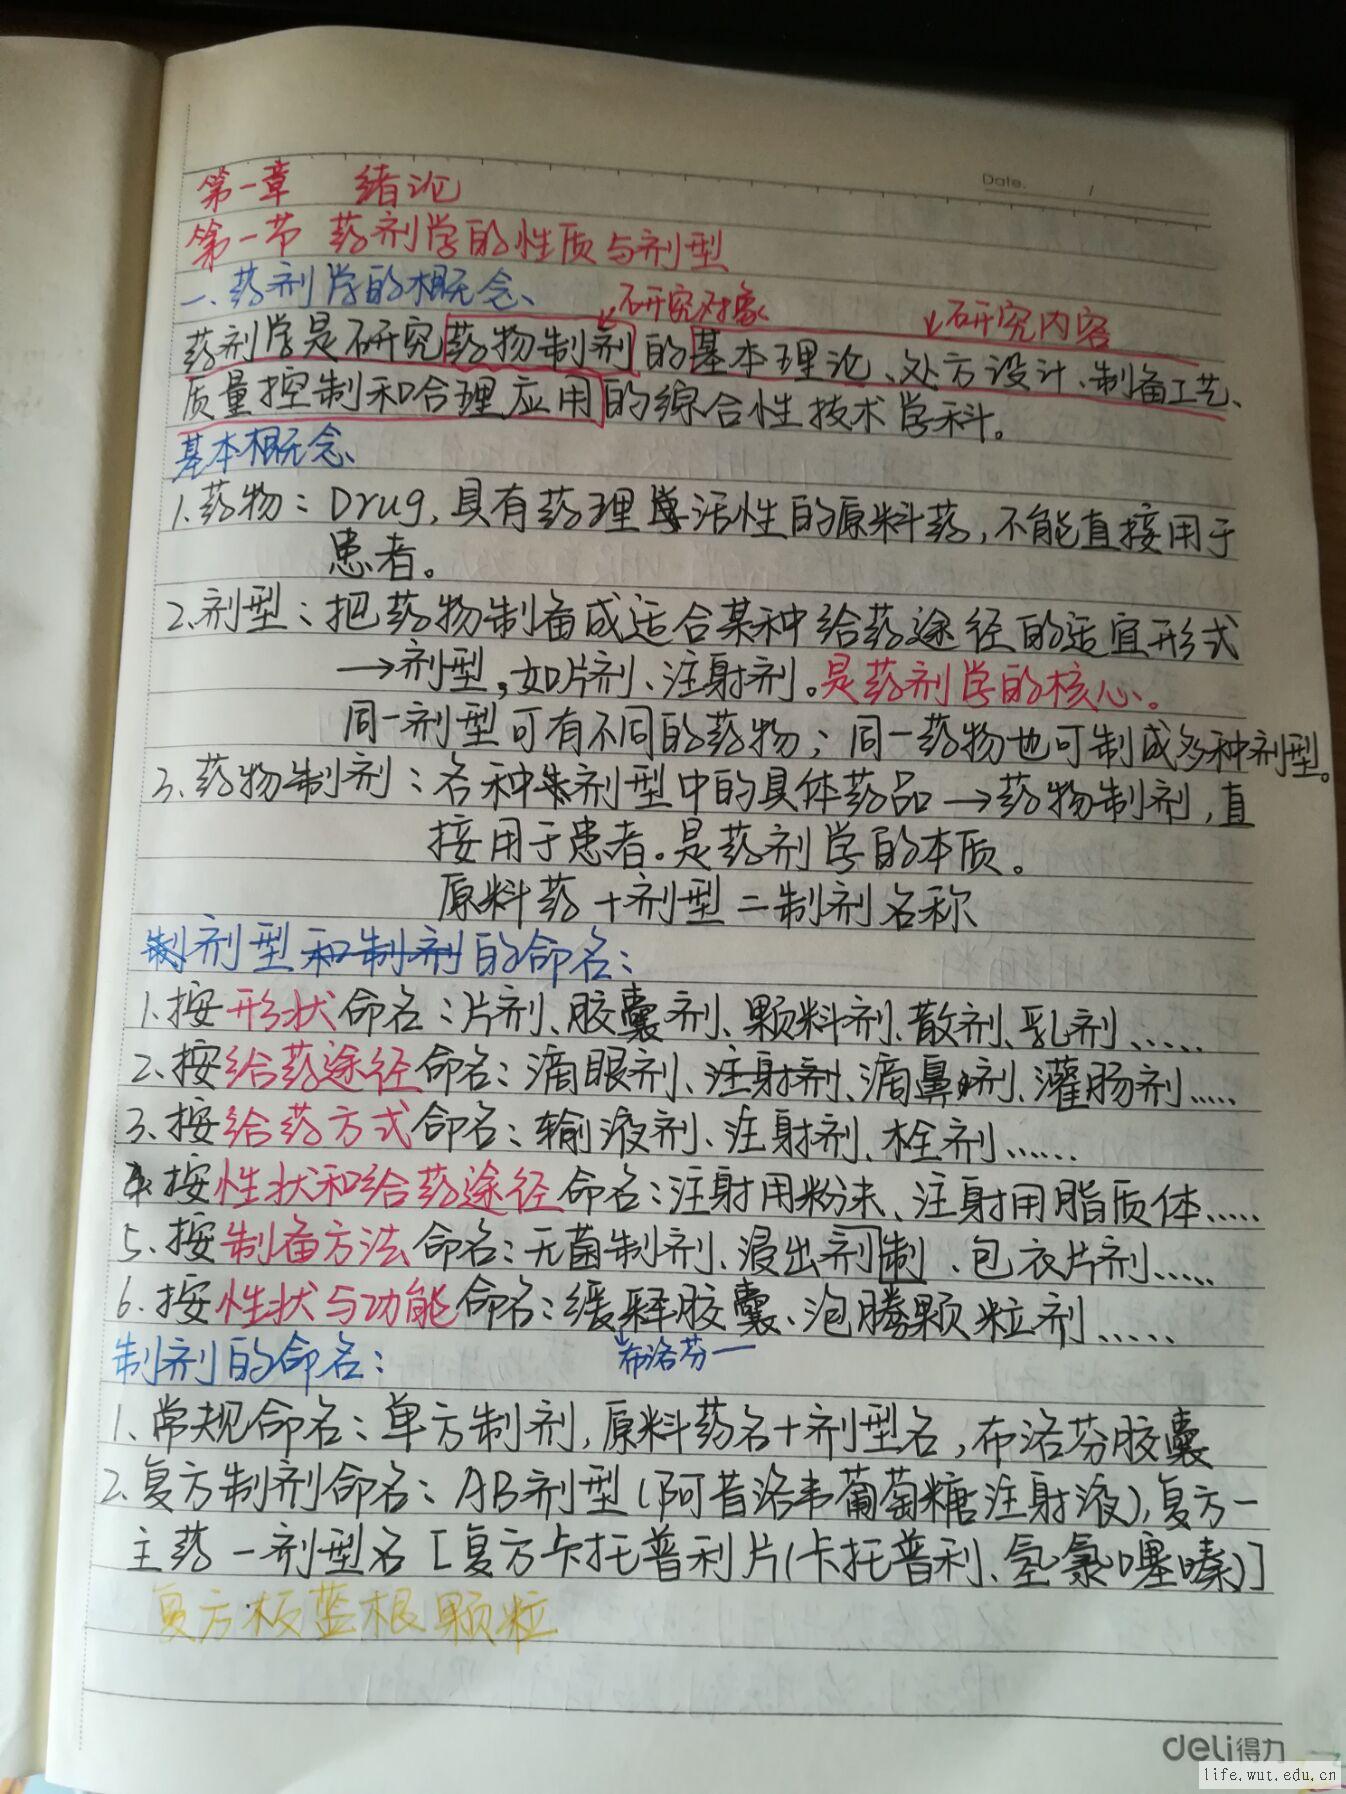 Date. /
第一章 绪论
第一节 药剂学的性质与剂型
一、药剂学的概念、
研究对象 研究内容
药剂学是研究药物制剂的基本理论、处方设计、制备工艺、
质量控制和合理应用的综合性技术学科。
基本概念、
1.药物：Drug,具有药理学活性的原料药,不能直接用于
患者。
2.剂型：把药物制备成适合某种给药途径的适宜形式
→剂型,如片剂、注射剂。是药剂学的核心。
同一剂型可有不同的药物；同一药物也可制成多种剂型。
3.药物制剂：各种剂型中的具体药品→药物制剂,直
接用于患者。是药剂学的本质。
原料药+剂型=制剂名称
剂型和制剂的命名：
1.按形状命名：片剂、胶囊剂、颗料剂、散剂、乳剂……
2.按给药途径命名：滴眼剂、注射剂、滴鼻剂、灌肠剂……
3.按给药方式命名：输液剂、注射剂、栓剂……
4.按性状和给药途径命名：注射用粉沫、注射用脂质体……
5.按制备方法命名：无菌制剂、浸出剂制、包衣片剂……
6.按性状与功能命名：缓释胶囊、泡腾颗粒剂……
制剂的命名： 布洛芬一
1.常规命名：单方制剂,原料药名+剂型名,布洛芬胶囊
2.复方制剂命名：AB剂型(阿昔洛韦葡萄糖注射液),复方一
主药一剂型名[复方卡托普利片(卡托普利、氢氯噻嗪)]
复方板蓝根颗粒
deli得力
life.wut.edu.cn